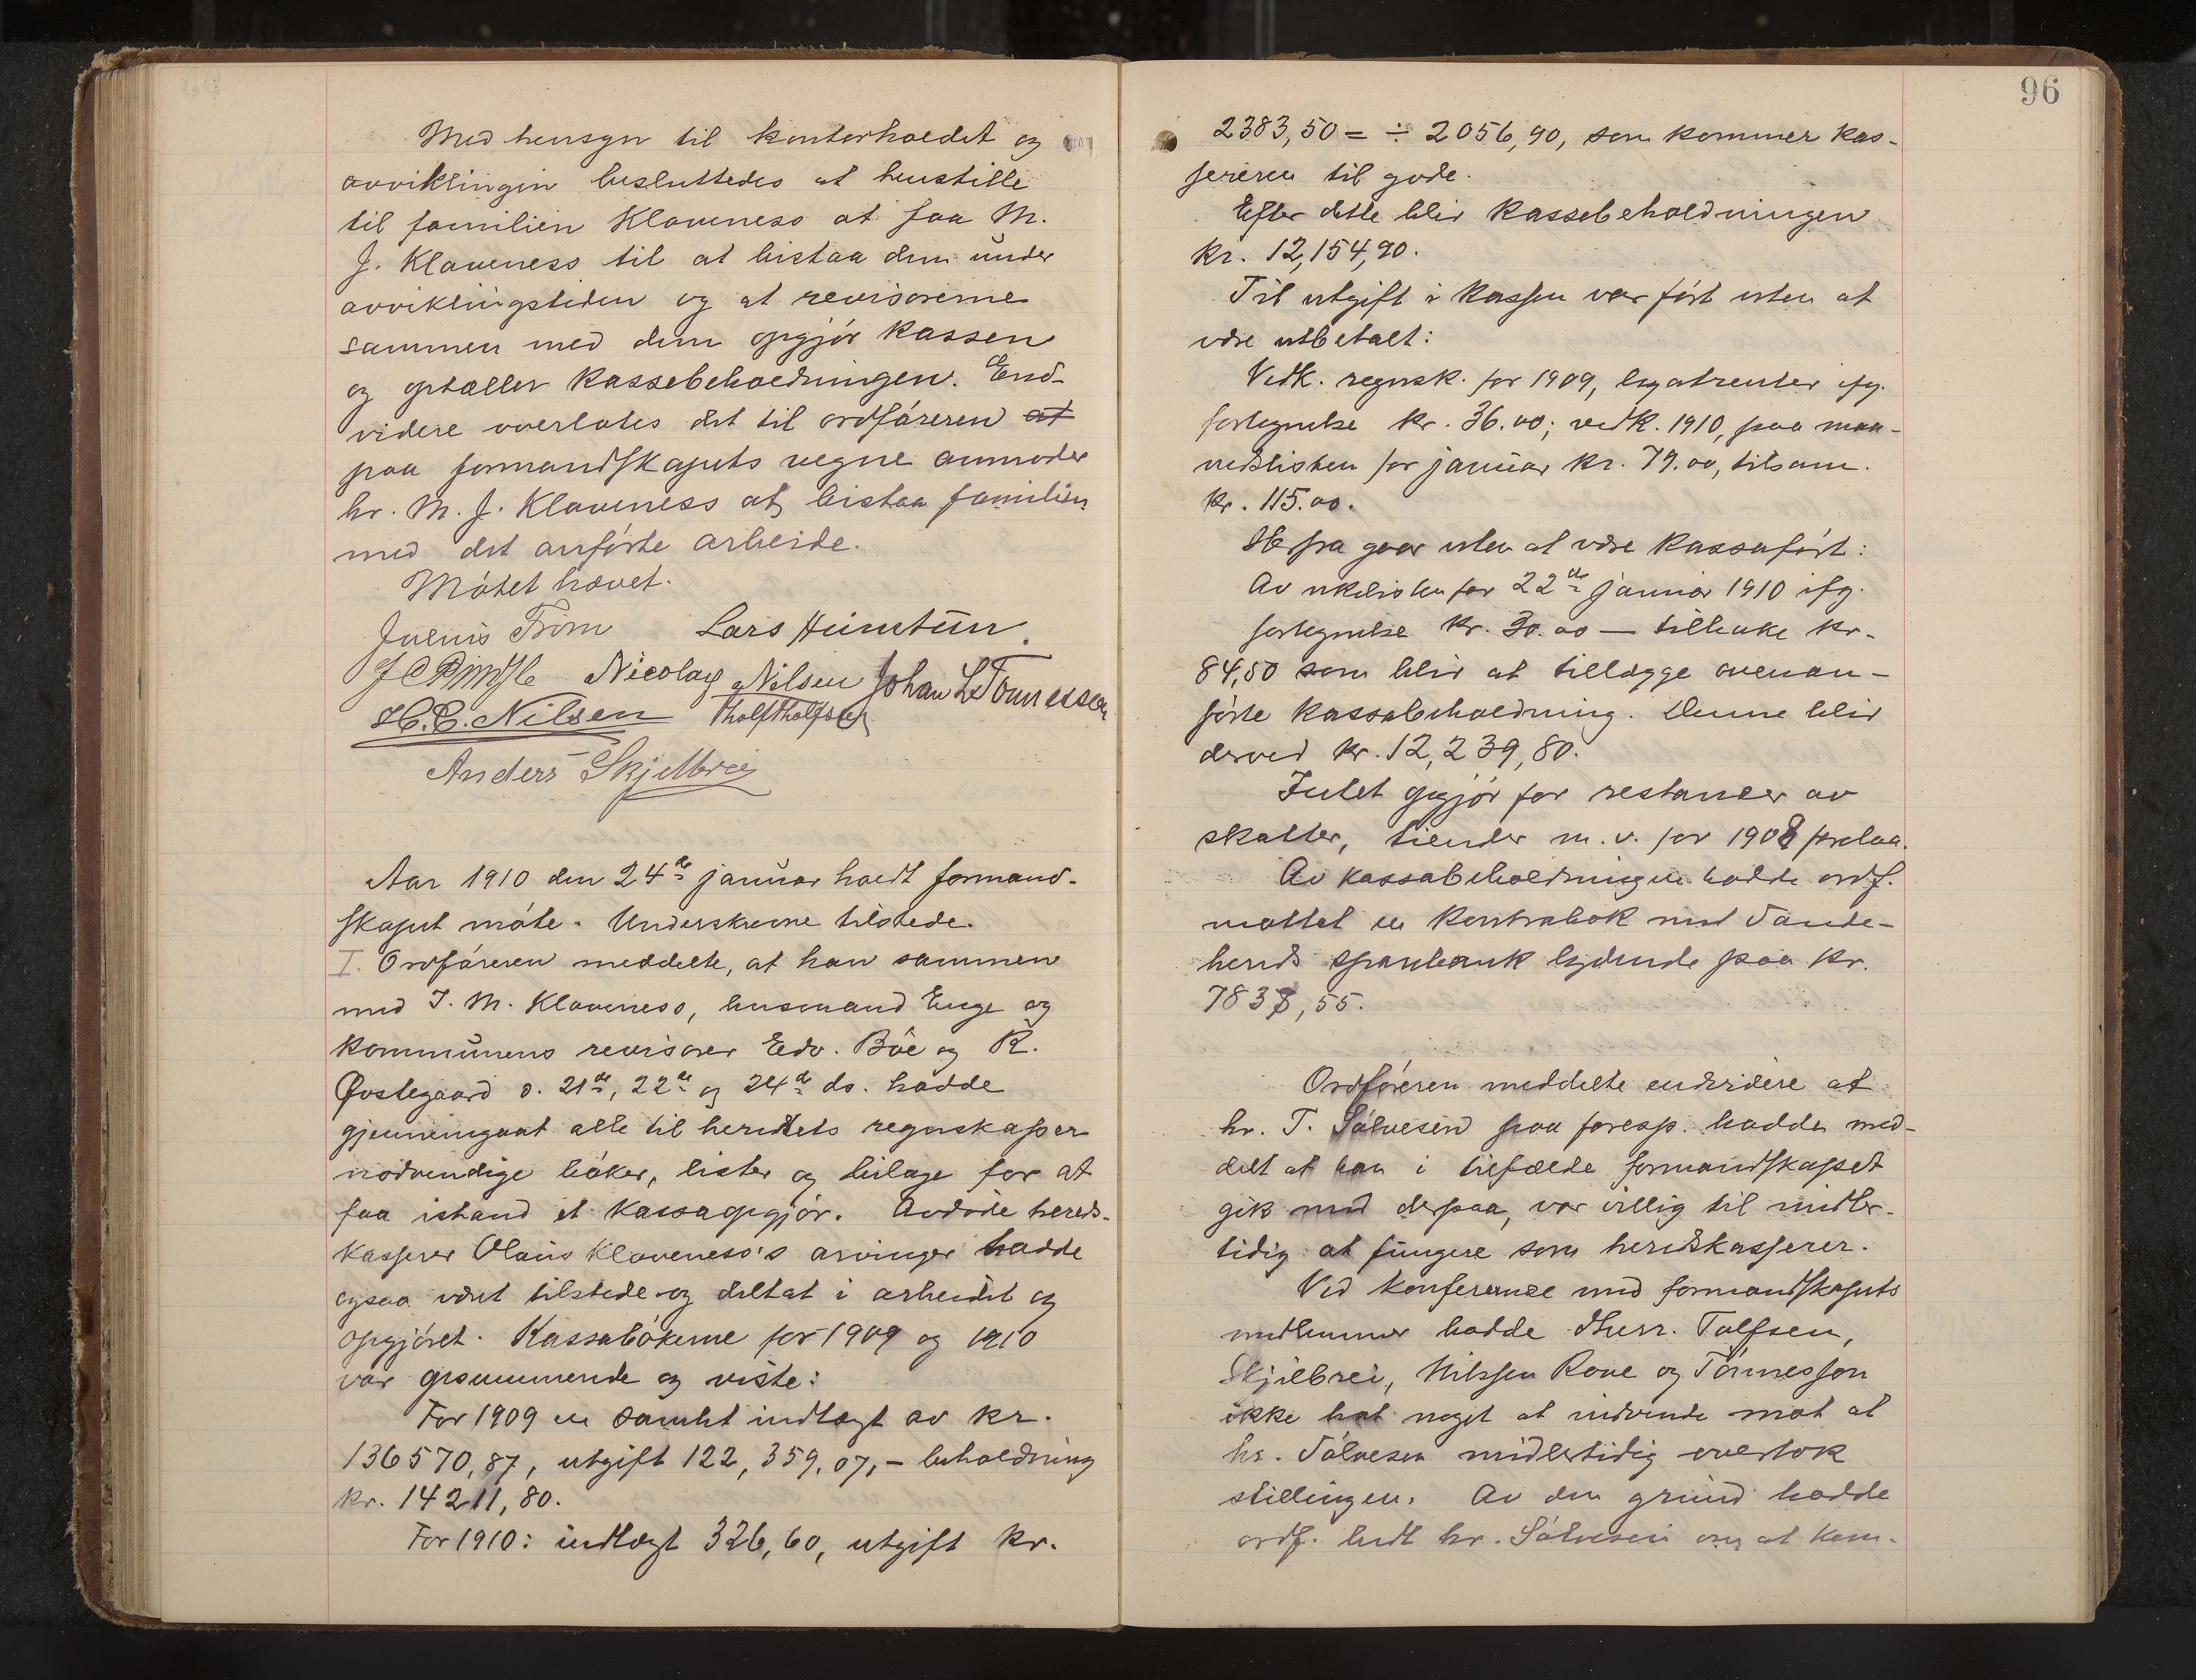 Med hensyn til kontorholdet og
avviklingen besluttedes at henstille
til familien Klaveness at faa M.
J. Klaveness til at bistaa dem under
avviklingstiden og at revisorerne
sammen med dem opgjør kassen
og optæller kassebeholdningen. End-
videre overlates det til ordføreren at
paa formandskapets vegne anmoder
hr. M. J. Klaveness at bistaa familien
med det anførte arbeide.
Møtet hævet.
Julius From Lars Heimtun.
Nicolay Nilsen Johan L Tønnessen
H. C. Nilsen Tholf Tholfsen
Anders Skjelbrei
Aar 1910 den 24de januar holdt formand-
skapet møte. Underskrevne tilstede.
I. Ordføreren meddelte, at han sammen
med J. M. Klaveness, husmand Enge og
kommunens revisorer Edv. Bøe og R.
Østegaard d. 21de, 22de og 24de ds. hadde
gjennemgaat alle til herredets regnskaper
nødvendige bøker, lister og bilage for at
faa istand et kassaopgjør. Avdøde hereds-
kasserer Olaus Klaveness's arvinger hadde
ogsaa været tilstede og deltat i arbeidet og
opgjøret. Kassabøkerne for 1909 og 1910
var opsummerede og viste:
For 1909 en samlet indtægt av kr.
136570,87, utgift 122,359,07, - beholdning
kr. 14211,80.
For 1910: indtægt 326,60, utgift kr.
96
2383,50 = ÷ 2056,90, som kommer kas-
sereren til gode.
Efter dette blir kassebeholdningen
kr. 12,154,90.
Til utgift i kassen var ført uten at
være utbetalt:
Vedk. regnsk. for 1909, legatrenter ifg.
fortegnelse kr. 36.00; vedk. 1910, paa maa-
nedslisten for januar kr. 79.00, tilsam.
kr. 115.00.
Herfra gaar uten at være kassaført:
Av ukelisten for 22de januar 1910 ifg.
fortegnelse kr. 30.00 — tilbake kr.
84,50 som blir at tillægge ovenan-
førte kassabeholdning. Denne blir
derved kr. 12,239,80.
Intet opgjør for restancer av
skatter, tiender m. v. for 1908 forelaa.
Av kassabeholdningen hadde ordf.
mottat en kontrabok med Sande-
herreds sparebank lydende paa kr.
7838,55.
Ordføreren meddelte endvidere at
hr. T. Sølvesen paa foresp. hadde med-
delt at han i tilfælde formandskapet
gik med derpaa, var villig til midler-
tidig at fungere som heredskasserer.
Ved konferanse med formandskapets
medlemmer hadde dherr. Tolfsen,
Skjelbrei, Nilssen Rove og Tønnesson
ikke hat noget at indvende mot at
hr. Sølvesen midlertidig overtok
stillingen. Av den grund hadde
ordf. bedt hr. Sølvesen om at kom-